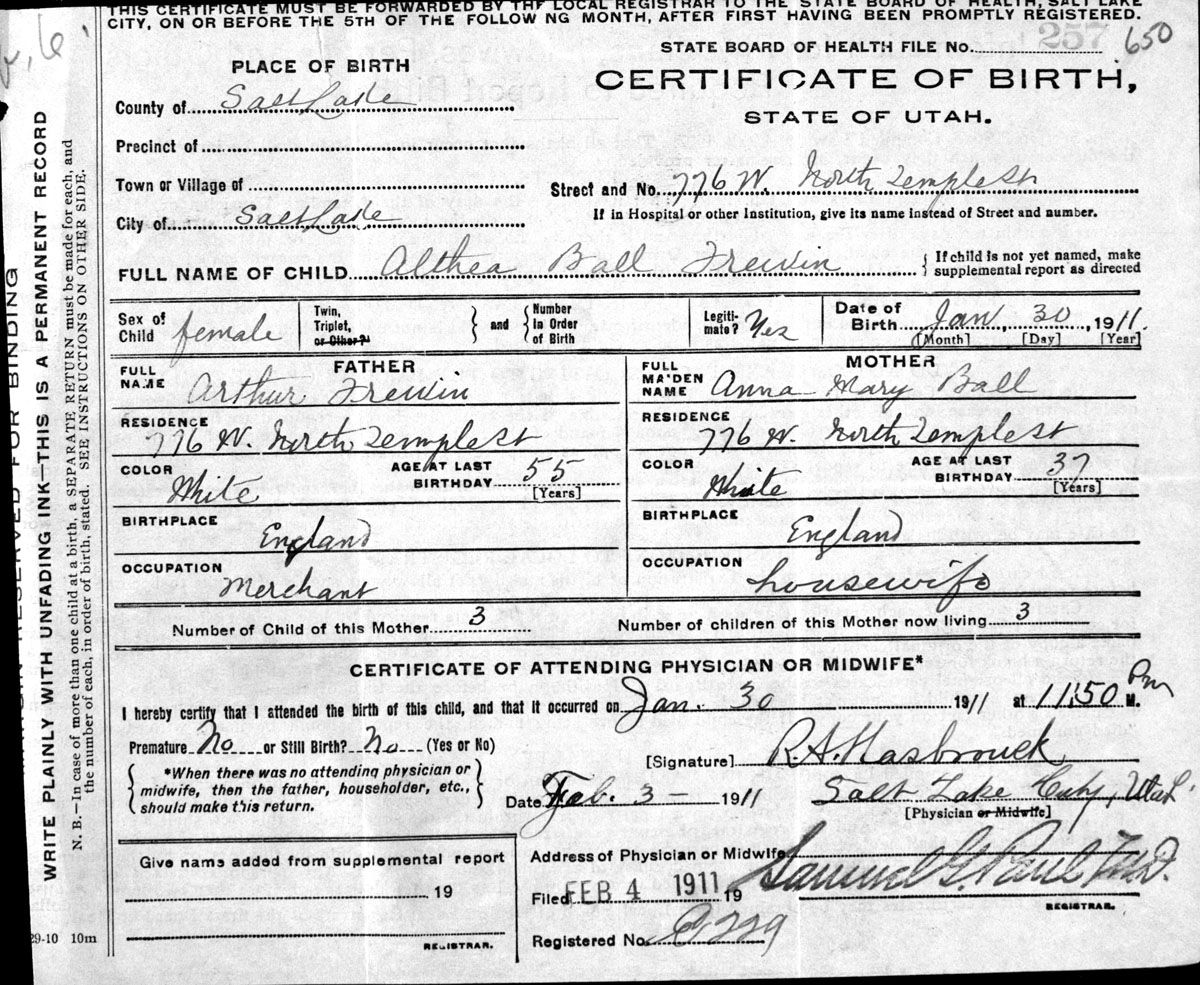 THIS CERTIFICATE MUST BE FORWARDED BY THE LOCAL REGISTRAR TO THE STATE BOARD OF HEALTH, SALT LAKE
CITY, ON OR BEFORE THE 5TH OF THE FOLLOW NG MONTH, AFTER FIRST HAVING BEEN PROMPTLY REGISTERED.
STATE BOARD OF HEALTH FILE No. 257 650
PLACE OF BIRTH
CERTIFICATE OF BIRTH,
STATE OF UTAH.
County of Salt Lake
Precinct of
Town or Village of
Street and No. 776 W. North Temple St
City of Salt Lake
If in Hospital or other Institution, give its name instead of Street and number.
FULL NAME OF CHILD Althea Ball Frewin
{ If child is not yet named, make
supplemental report as directed
Sex of Child female
Twin, Triplet, or Other? } and { Number in Order of Birth
Legiti-mate? Yes
Date of Birth Jan, 30, 1911.
[Month] [Day] [Year]
FATHER
FULL NAME Arthur Frewin
RESIDENCE
776 W. North Temple St
COLOR White
AGE AT LAST BIRTHDAY 55
[Years]
BIRTHPLACE England
OCCUPATION Merchant
MOTHER
FULL MA'DEN NAME Anna Mary Ball
RESIDENCE
776 W. North Temple St
COLOR White
AGE AT LAST BIRTHDAY 37
[Years]
BIRTHPLACE England
OCCUPATION housewife
Number of Child of this Mother 3
Number of children of this Mother now living 3
CERTIFICATE OF ATTENDING PHYSICIAN OR MIDWIFE*
I hereby certify that I attended the birth of this child, and that it occurred on Jan. 30 1911 at 11.50 Pm M.
Premature No or Still Birth? No (Yes or No)
[Signature] R.A. Hasbrouck
{ *When there was no attending physician or
midwife, then the father, householder, etc.,
should make this return. }
Date Feb. 3 - 1911
Salt Lake City, Utah.
[Physician or Midwife]
Give name added from supplemental report
19
REGISTRAR.
Address of Physician or Midwife
Filed FEB 4 1911 19
Samuel G. Paul M.D.
REGISTRAR.
Registered No.
29-10 10m
MARGIN RESERVED FOR BINDING
WRITE PLAINLY WITH UNFADING INK-THIS IS A PERMANENT RECORD
N. B.—In case of more than one child at a birth, a SEPARATE RETURN must be made for each, and
the number of each, in order of birth, stated. SEE INSTRUCTIONS ON OTHER SIDE.